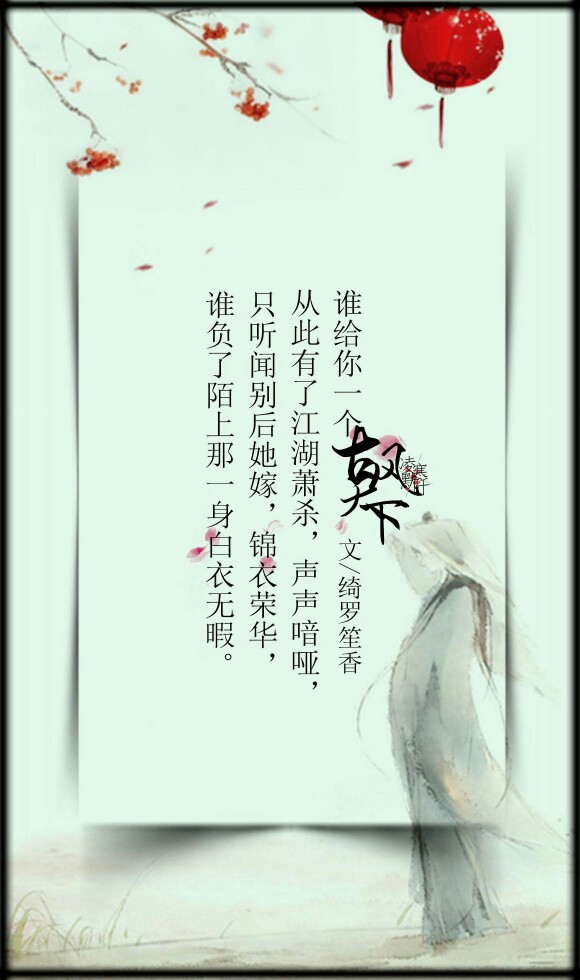 谁给你一个古风天下
文/绮罗笙香
从此有了江湖萧杀，声声喑哑，
只听闻别后她嫁，锦衣荣华，
谁负了陌上那一身白衣无暇。